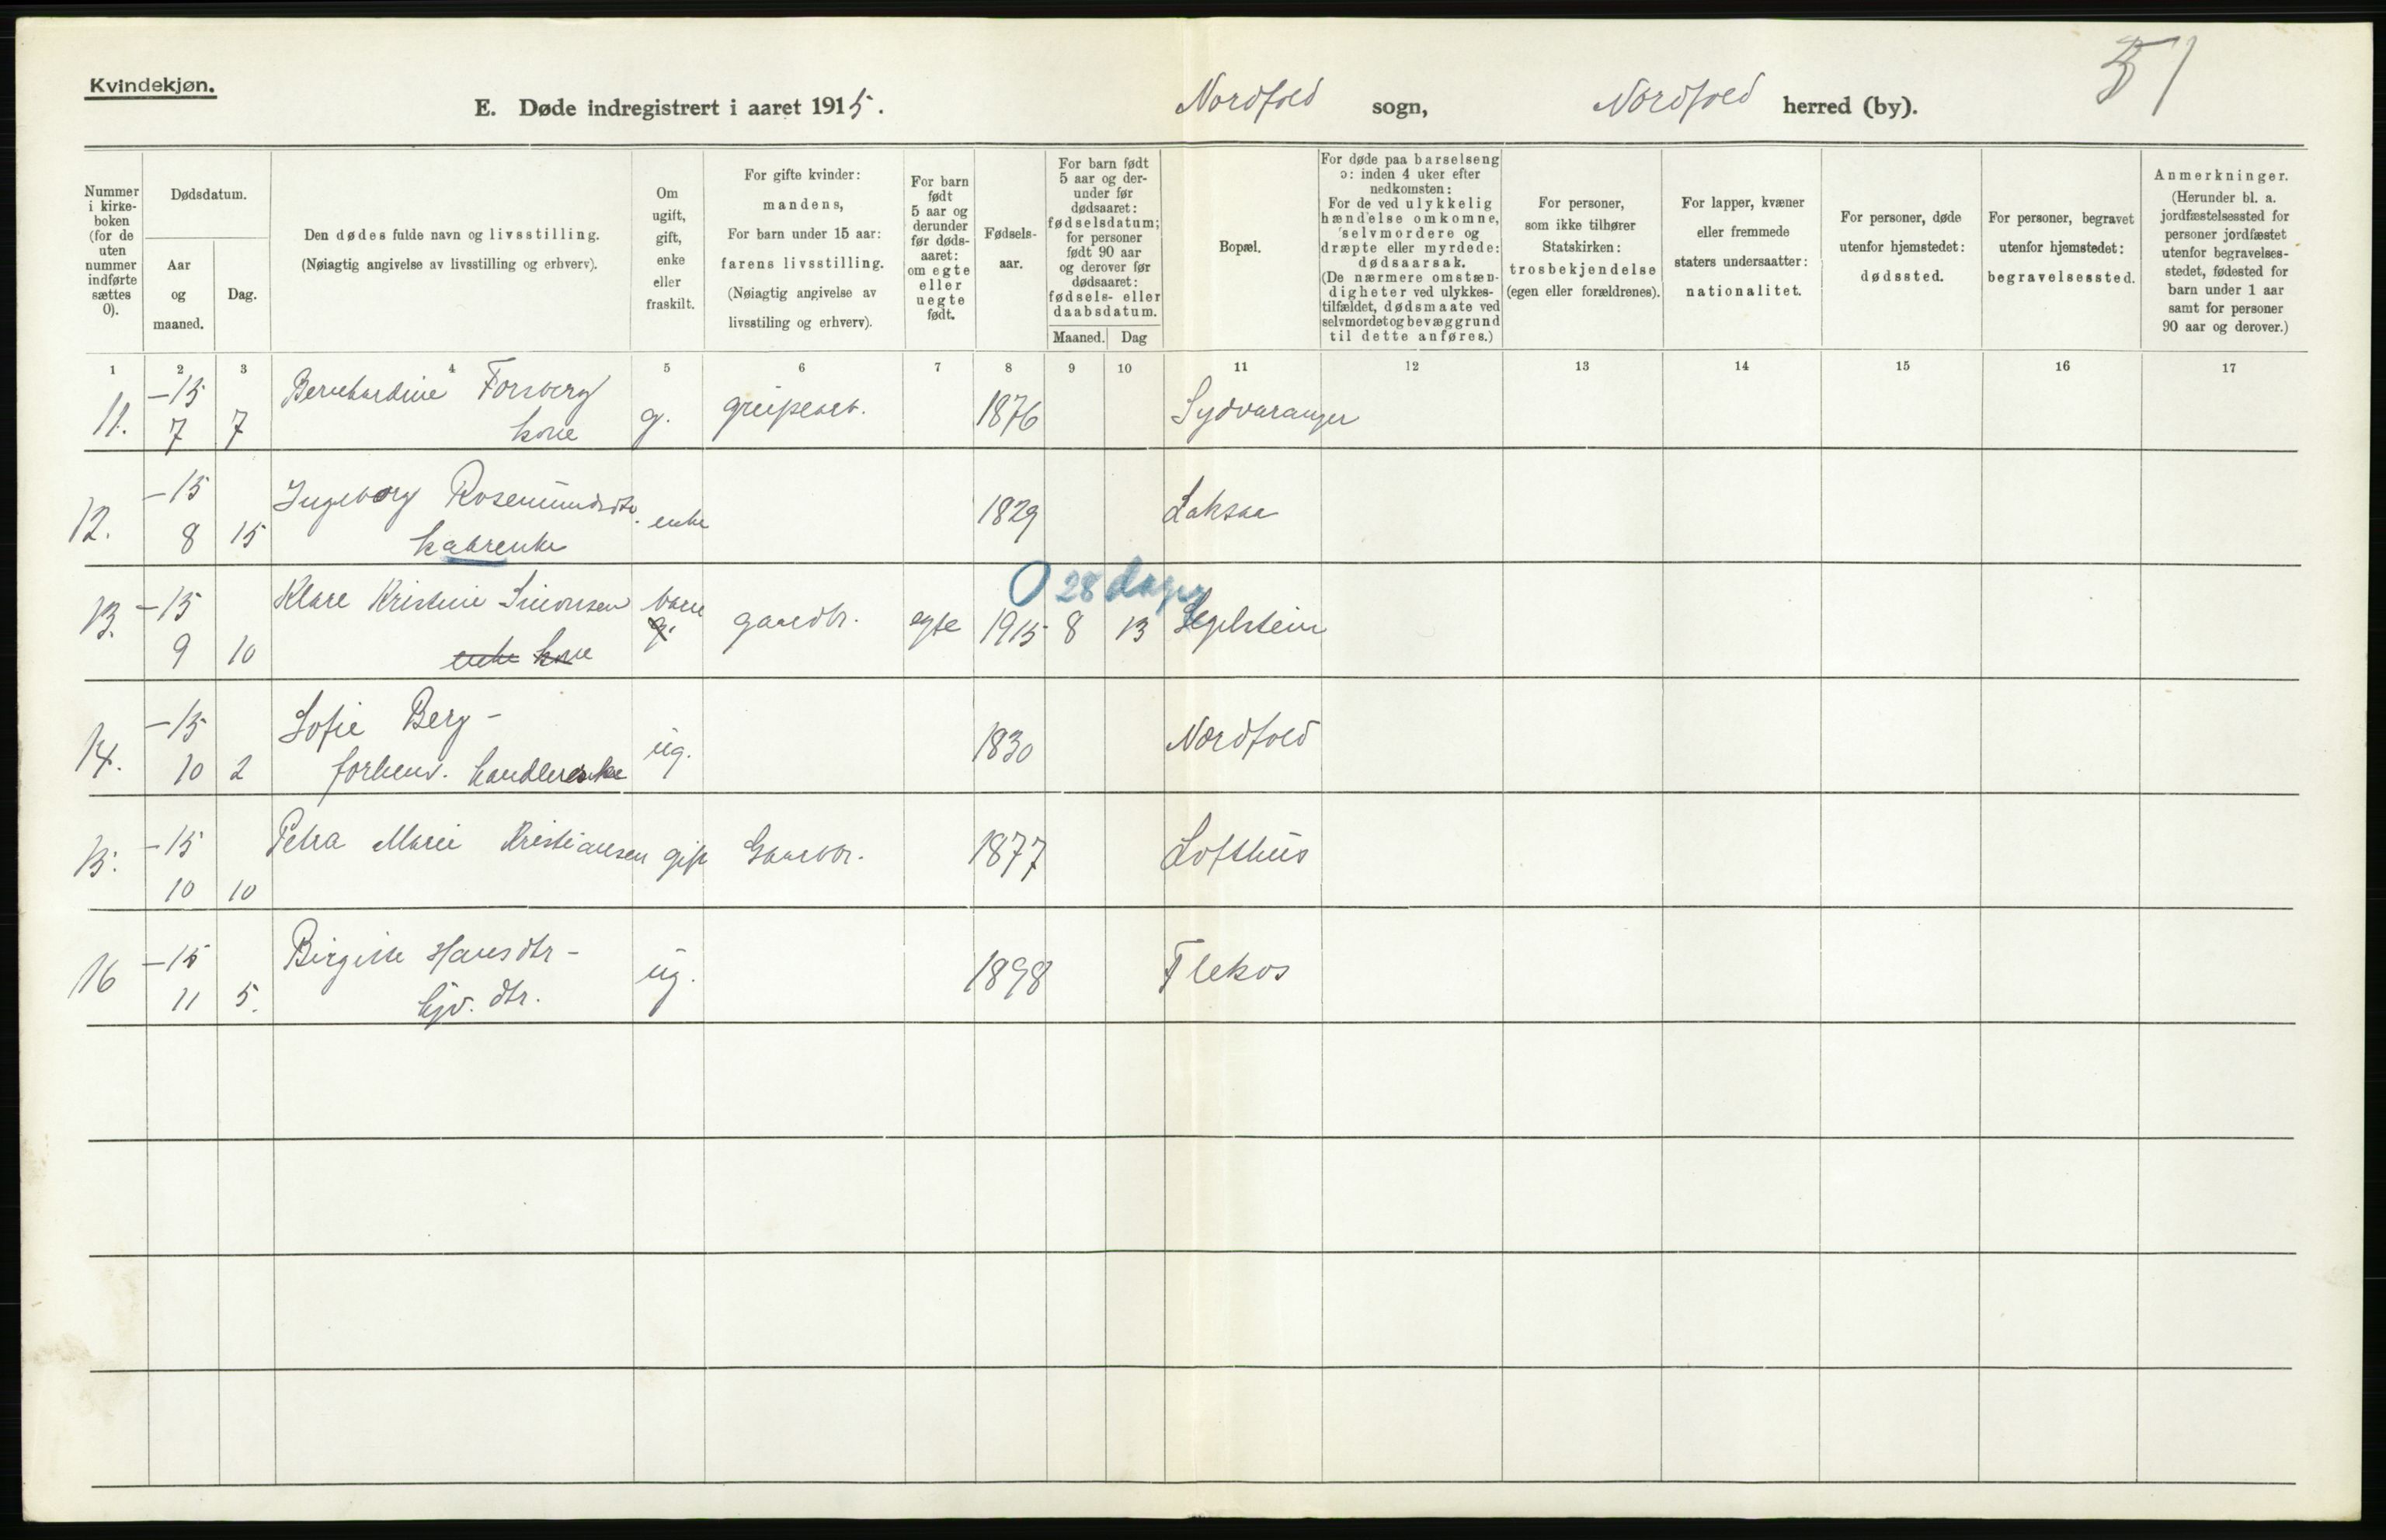 Kvindekjøn.
E. Døde indregistrert i aaret 1915. Nordfold sogn, Nordfold herred (by).
51
Nummer i kirke-boken (for de uten nummer indførte sættes 0).
Dødsdatum.
Aar og maaned.
Dag.
Den dødes fulde navn og livsstilling.
(Nøiagtig angivelse av livsstilling og erhverv).
Om ugift, gift, enke eller fraskilt.
For gifte kvinder: mandens,
For barn under 15 aar: farens livsstilling.
(Nøiagtig angivelse av livsstiling og erhverv).
For barn født 5 aar og derunder før døds-aaret: om egte eller uegte født.
Fødsels-aar.
For barn født 5 aar og der-under før dødsaaret: fødselsdatum; for personer født 90 aar og derover før dødsaaret: fødsels- eller daabsdatum.
Maaned.
Dag
Bopæl.
For døde paa barselseng ɔ: inden 4 uker efter nedkomsten:
For de ved ulykkelig hændelse omkomne, selvmordere og dræpte eller myrdede: dødsaarsak.
(De nærmere omstæn-digheter ved ulykkes-tilfældet, dødsmaate ved selvmordet og bevæggrund til dette anføres.)
For personer, som ikke tilhører Statskirken: trosbekjendelse (egen eller forældrenes).
For lapper, kvæner eller fremmede staters undersaatter: nationalitet.
For personer, døde utenfor hjemstedet: dødssted.
For personer, begravet utenfor hjemstedet: begravelsessted.
Anmerkninger.
(Herunder bl. a. jordfæstelsessted for personer jordfæstet utenfor begravelses-stedet, fødested for barn under 1 aar samt for personer 90 aar og derover.)
1 2 3 4 5 6 7 8 9 10 11 12 13 14 15 16 17
11. -15 Bernhardine Forsberg
7 7 kone g. 1876 Sydvaranger
12. -15 Ingeborg Rosemundsdtr. enke 1829 Laksaa
8 15 kaarenke
0 28 dager
13. -15 Klare Kristine Simonsen barn g. gaardbr. egte 1915 8 13 Seglstein
9 10 enke kone
14. -15 Sofie Berg - ug. 1830 Nordfold
10 2 forhenv. handlerske
15. -15 Petra Marie Kristiansen gift Gaardbr. 1877 Lofthus
10 10
16 -15 Birgitte Hansdtr - ug. 1898 Flekos
11 5. hjv. dtr.